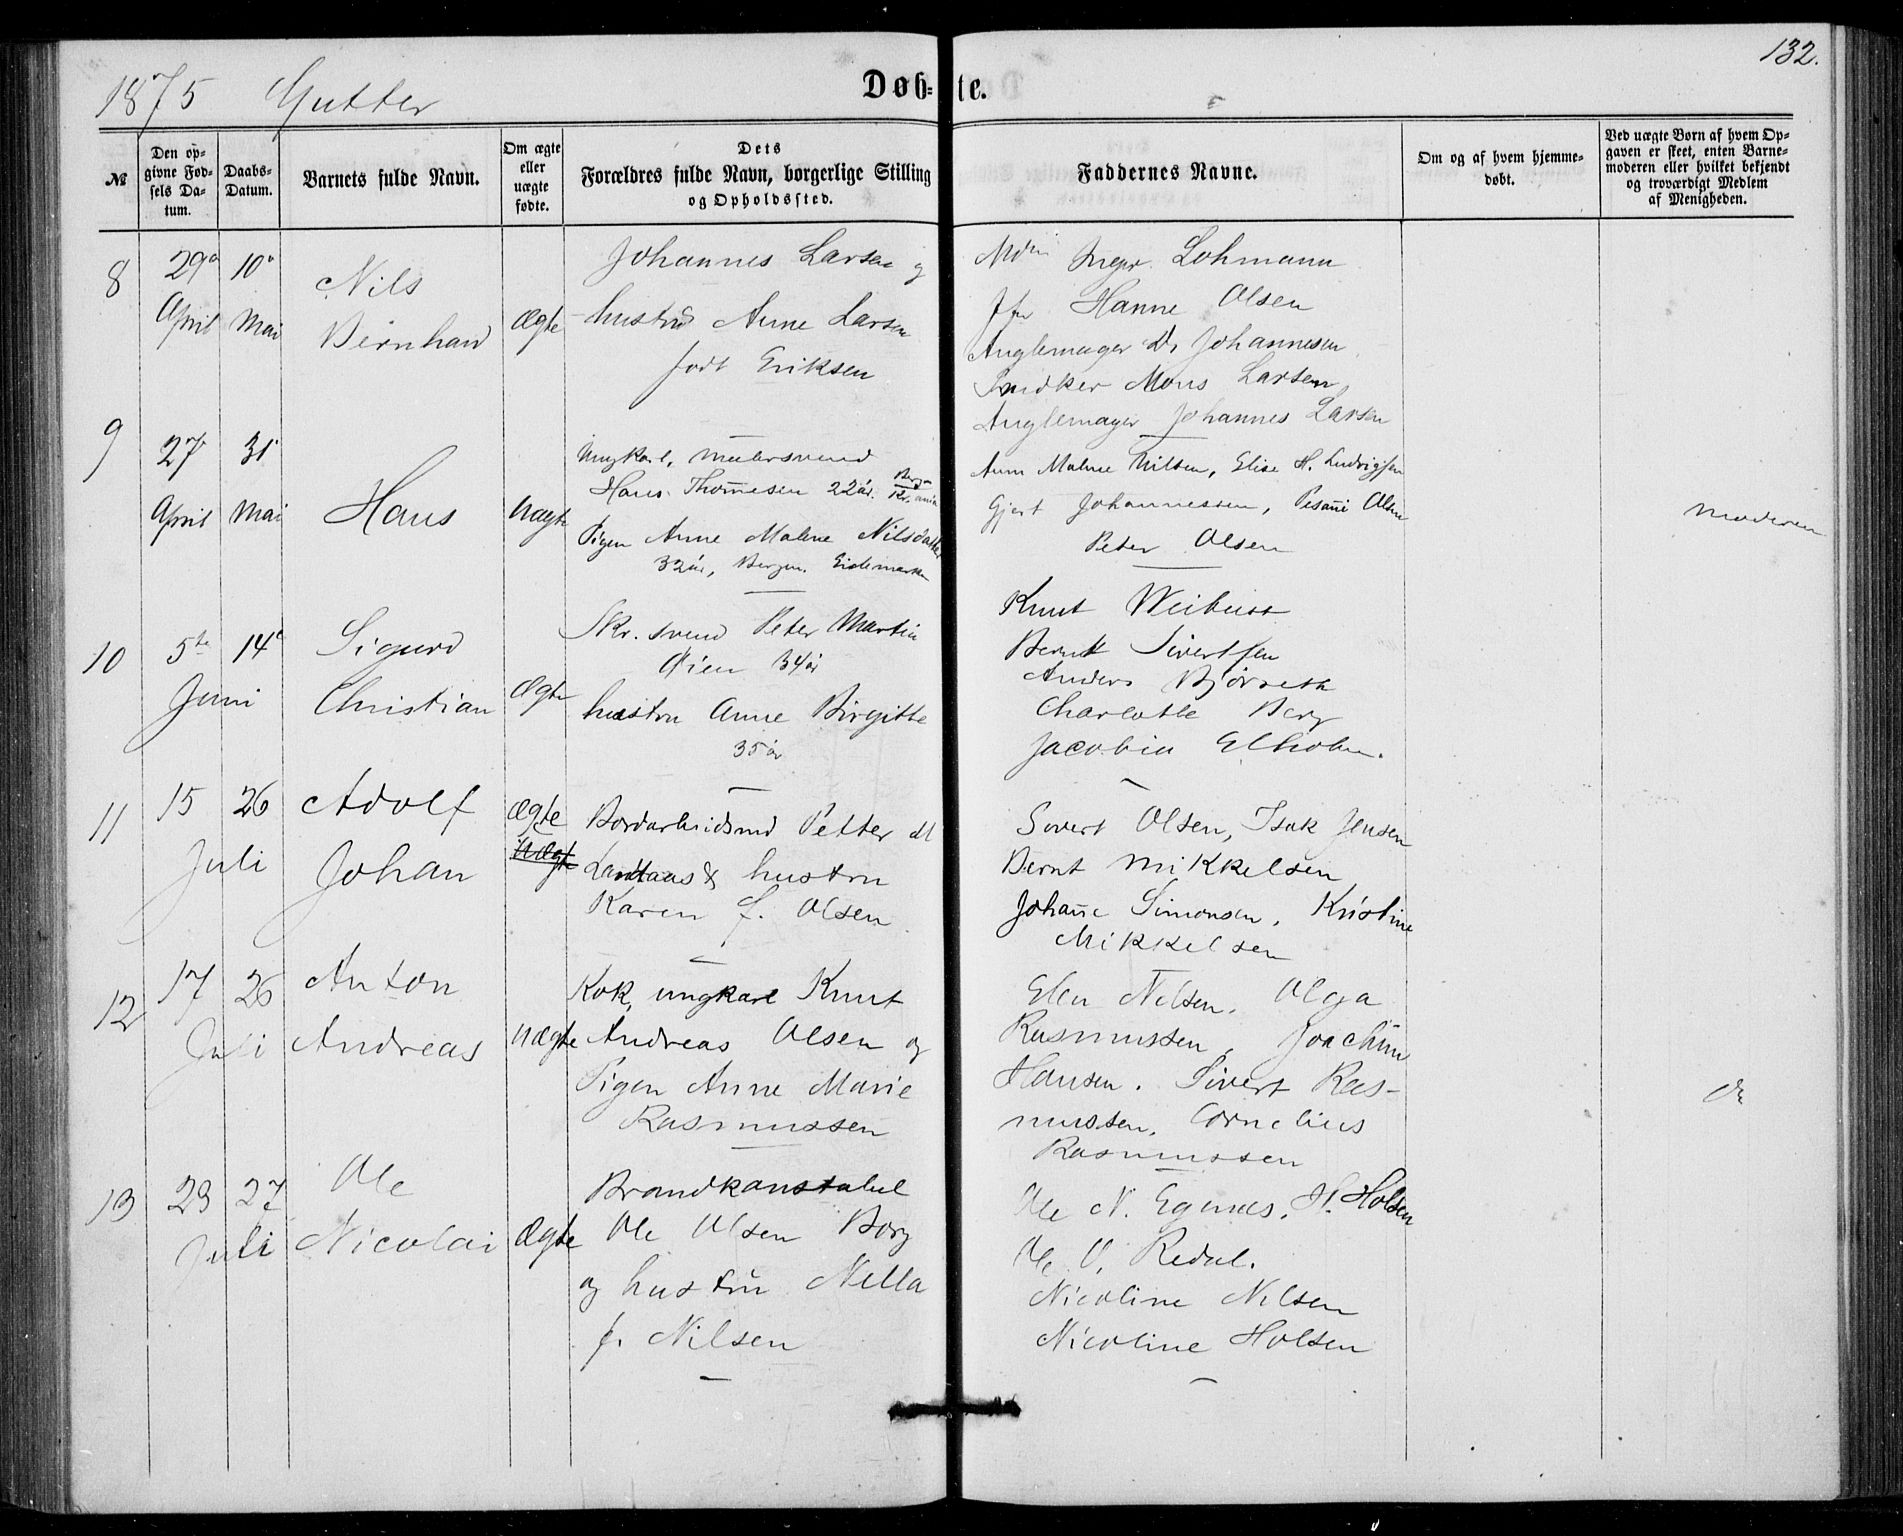 132.
1875 Gutter
Døb-te.
№
Den op-
givne Fød-
sels Da-
tum.
Daabs-
Datum.
Barnets fulde Navn.
Om ægte
eller
uægte
fødte.
Dets
Forældres fulde Navn, borgerlige Stilling
og Opholdssted.
Faddernes Navne.
Om og af hvem hjemme-
døbt.
Ved uægte Børn af hvem Op-
gaven er skeet, enten Barne-
moderen eller hvilket bekjendt
og troværdigt Medlem
af Menigheden.
8
29
April
10
Mai
Nils
Bernhard
Ægte
Johannes Larsen og
hustru Anne Larsen
født Eriksen
Lohmann
Hanne Olsen
Anglemager Johannesen
Snidker Mons Larsen,
Anglemager Johannes Larsen
9
27
April
31
Mai
Hans
Uægte
Ungkarl, malersvend
Hans Thomesen 22 år.
Pigen Anne Malene Nilsdatter
32 år, Bergen.
Anne Malene Nilsen, Elise H. Ludvigsen
Gjert Johannessen, Olsen
Peter Olsen
Moderen
10
5te
Juni
14
Sigurd
Christian
Ægte
Skr. svend Peter Martin
Øien 34 år
hustru Anne Birgitte
35 år
Knut
Bernt Sivertsen
Anders Bjørseth
Charlotte Berg
Jacobia Elholm.
11
15
Juli
26
Adolf
Johan
Ægte
Uægte
Bordarbeidsmd Petter A
Landaas & hustru
Karen f. Olsen
Sivert Olsen, Isak Jensen
Bernt Mikkelsen
Johanne Simonsen, Kristine
Mikkelsen
12
17
Juli
26
Anton
Andreas
Uægte
Kok, ungkarl Knut
Andreas Olsen og
Pigen Anne Marie
Rasmussen
Elen Nilsen, Olga
Rasmussen, Joachim
Hansen. Sivert Ras-
mussen, Cornelius
Rasmussen
do
13
23
Juli
27
Ole
Nicolai
Ægte
Brandkonstabel
Ole Olsen Borg
og hustru Nella
f. Nilsen
Ole N. H. Holsen
Ole O. Redal.
Nicoline Nilsen
Nicoline Holsen